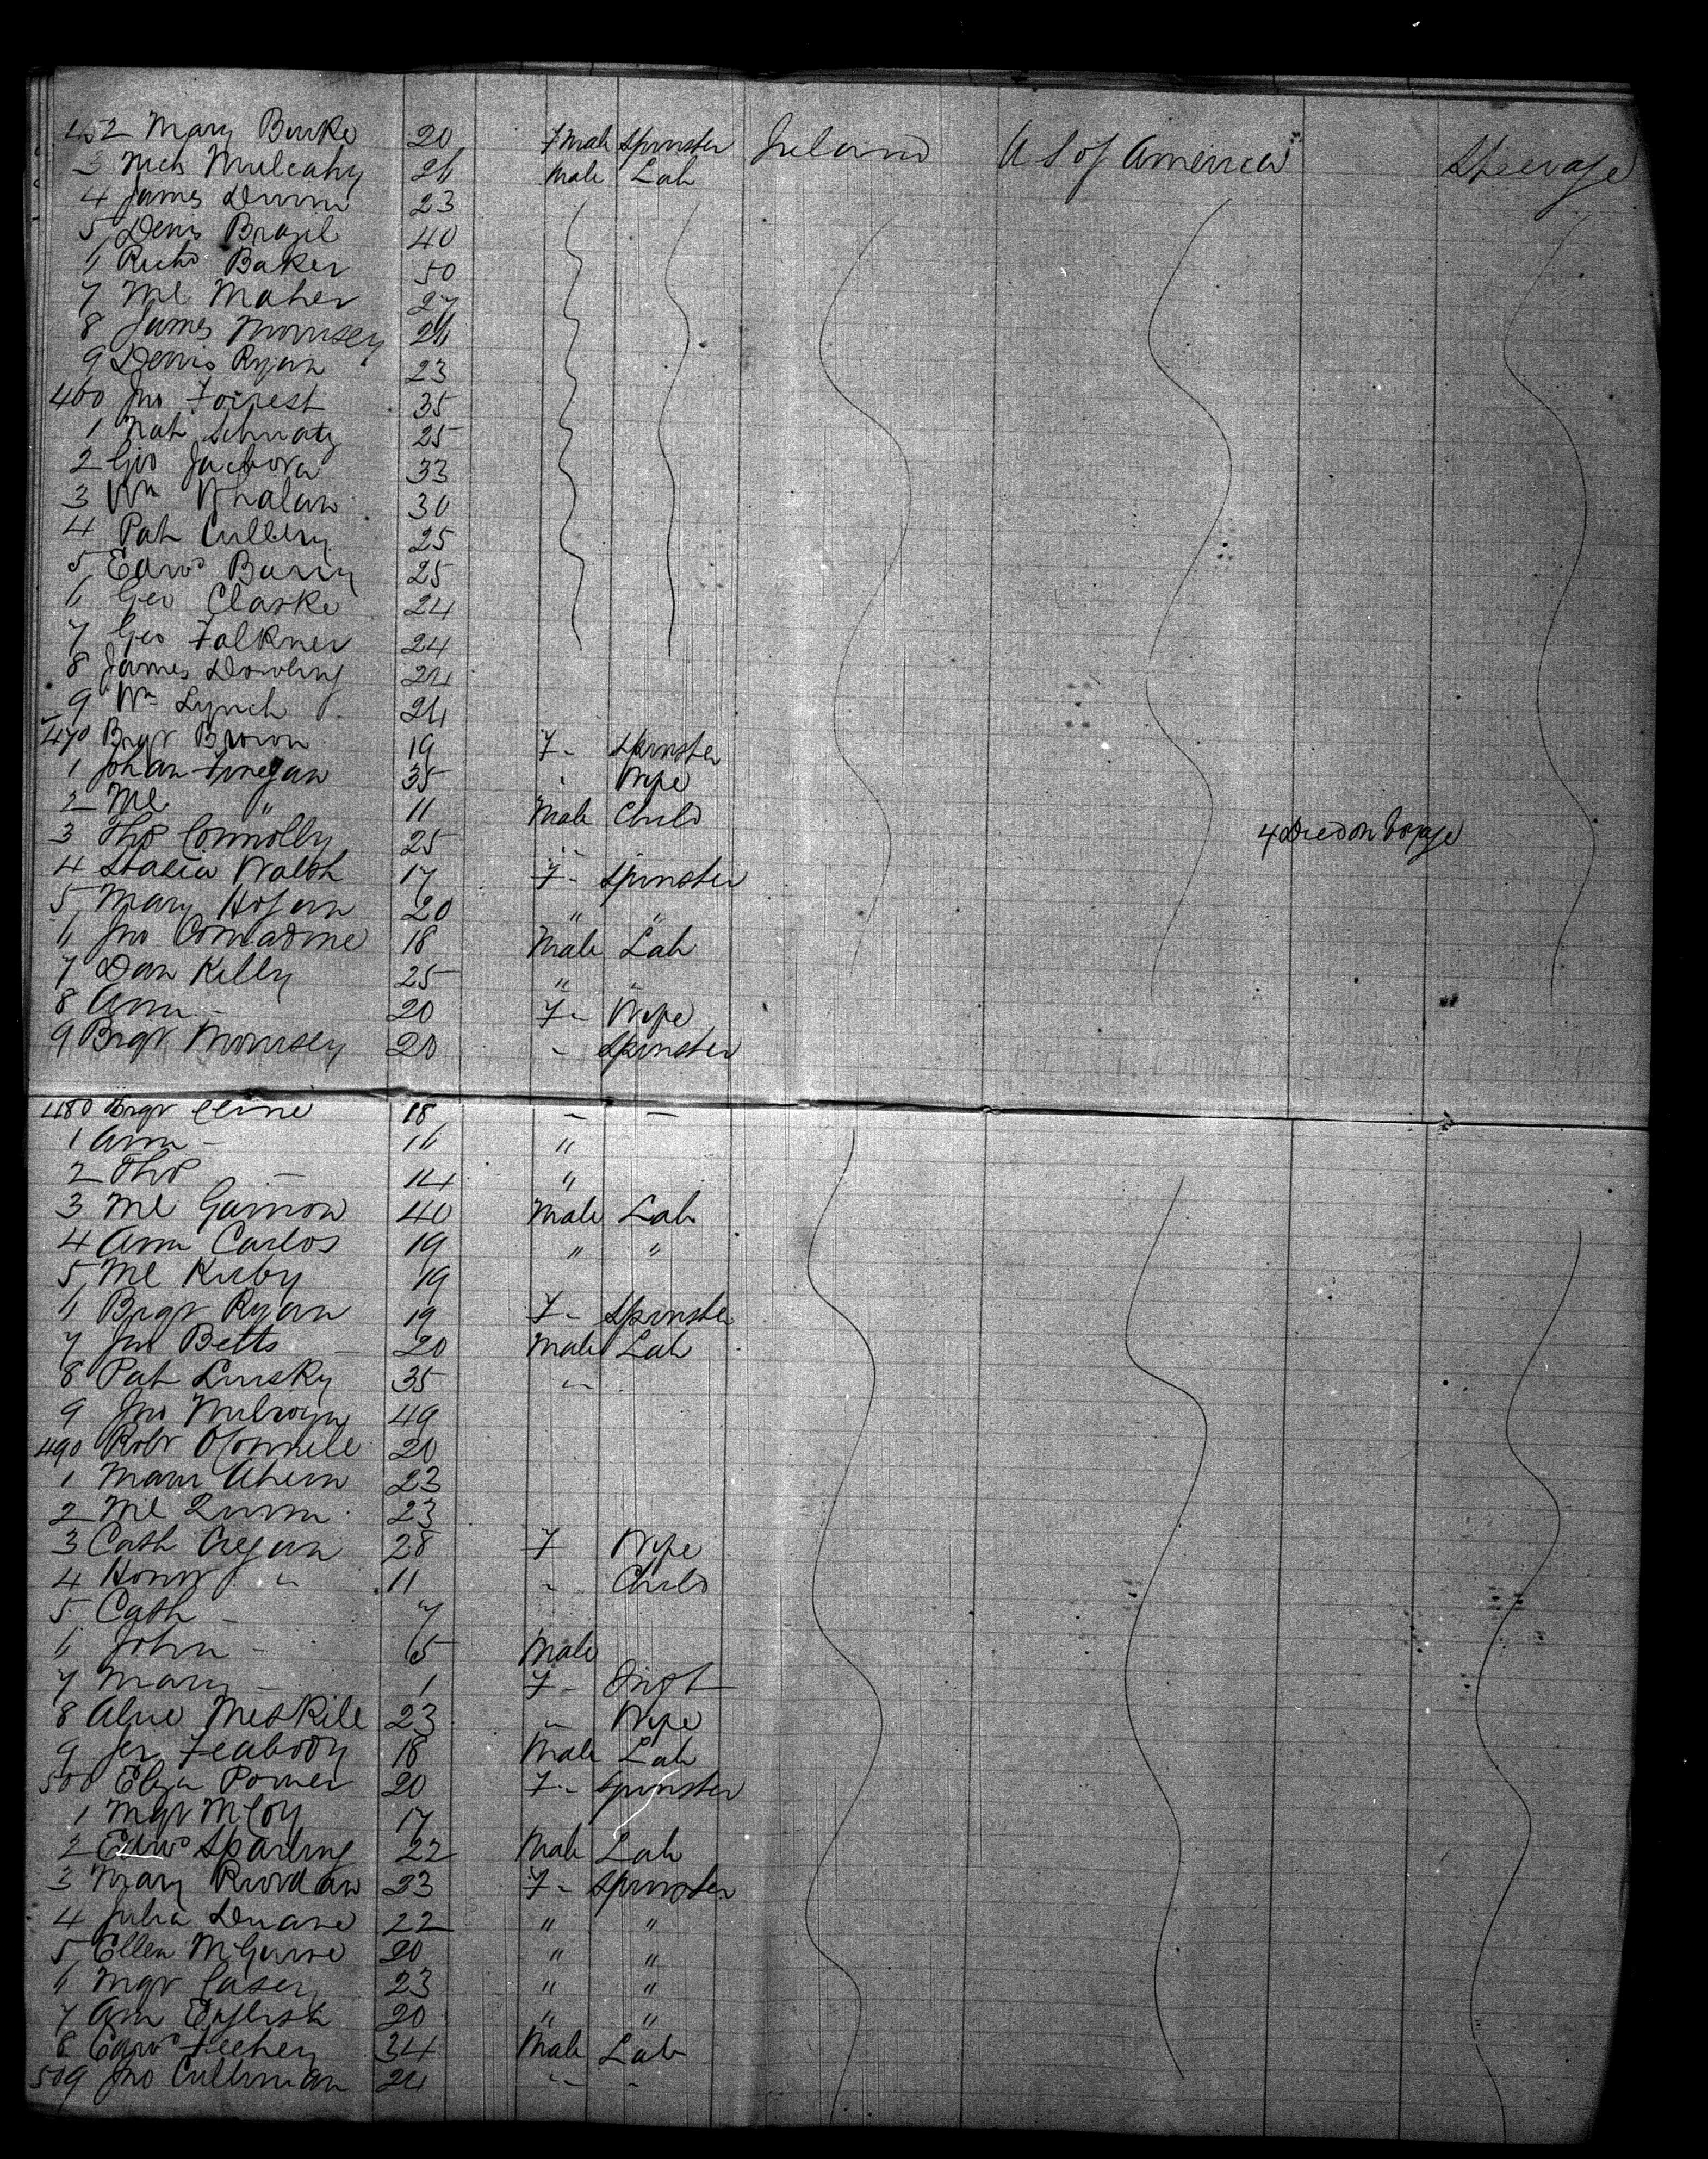 452 Mary Burke 20 Fmale Spinster Ireland U S of America Steerage
3 Mich Mulcahy 26 Male Lab
4 James Dunn 23
5 Denis Brazil 40
6 Richd Baker 50
7 Ml Maher 27
8 James Morrisey 26
9 Denis Ryan 23
460 Jno Forrest 35
1 25
2 Geo 33
3 Wm Whalan 30
4 Pat Cullery 25
5 Edwd Barry 25
6 Geo Clarke 24
7 Geo Falkner 24
8 James Dowling 24
9 Wm Lynch 24
470 Brgt Brown 19 F - Spinster
1 Johan Finegan 35 " Wife
2 Ml " 11 Male Child
3 Thos Connolly 25 " 4 Died on Voyage
4 Stasia Walsh 17 F - Spinster
5 Mary Hogan 20 " "
6 Jno Comadine 18 Male Lab
7 Dan Killy 25 " "
8 Ann - 20 F - Wife
9 Brgt Morrisey 20 " Spinster
480 Brgt 18 - -
1 Ann - 16 "
2 Thos - 14 "
3 Ml Gannon 40 Male Lab
4 Ann Carlos 19 " "
5 Ml Kirby 19
6 Brgt Ryan 19 F - Spinster
7 Jno Betts 20 Male Lab
8 Pat Linsky 35 "
9 Jno 49
490 Robt OConnell 20
1 Ahern 23
2 Ml Quinn 23
3 Cath Cregan 28 F Wife
4 Honor " 11 " Child
5 Cath - 7
6 John - 5 Male
7 Mary - 1 F - Inft
8 Alice Meskile 23 " Wife
9 Jer Peabody 18 Male Lab
500 Eliza Power 20 F - Spinster
1 Mgt McCoy 17
2 Edwd Sparling 22 Male Lab
3 Mary Riordan 23 F - Spinster
4 Julia Duane 22 " "
5 Ellen McGuire 20 " "
6 Mgt Casey 23 " "
7 Ann 20 " "
8 Edwd Feehey 34 Male Lab
509 Jno Cullinan 24 " "